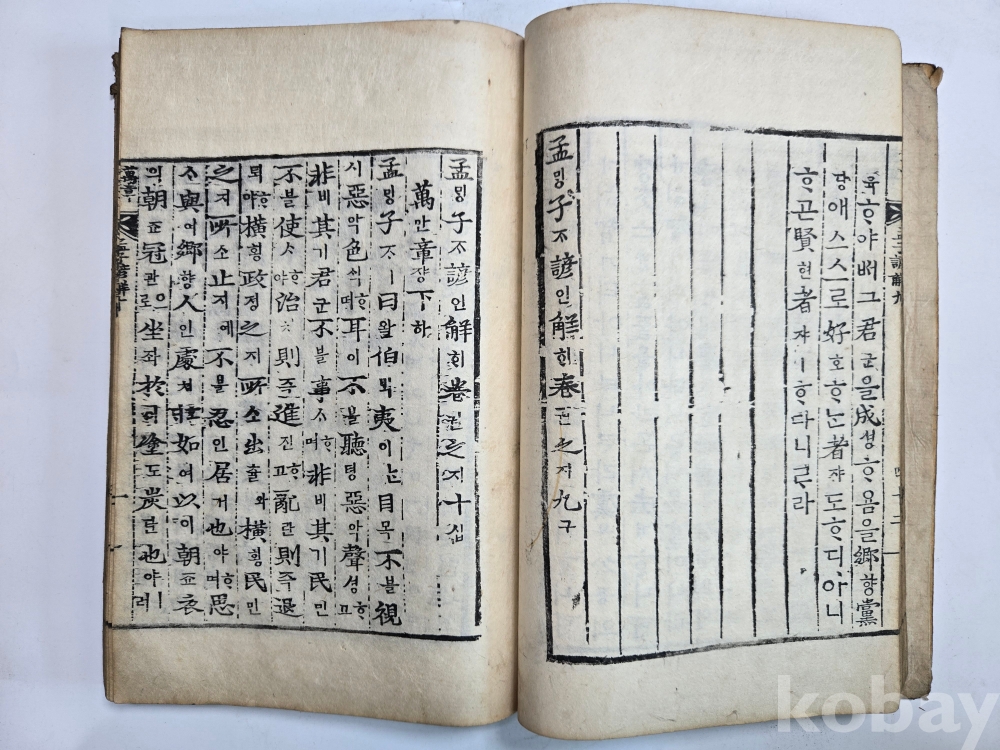 육ᄒᆞ야ᄡᅥ그君군을成셩ᄒᆞ욤을鄕향黨
당애스스로好호ᄒᆞᄂᆞᆫ者쟈도ᄒᆞ디아니
ᄒᆞ곤賢현者쟈ㅣᄒᆞ다니ᄅᆞ랴
孟ᄆᆡᆼ子ᄌᆞ諺언解ᄒᆡ卷권之지九구
孟ᄆᆡᆼ子ᄌᆞ諺언解ᄒᆡ卷권之지十십
萬만章쟝下하
孟ᄆᆡᆼ子ᄌᆞㅣ曰왈伯ᄇᆡᆨ夷이ᄂᆞᆫ目목不블視
시惡악色ᄉᆡᆨᄒᆞ며耳이不블聽텽惡악聲셩ᄒᆞ고
非비其기君군不블事ᄉᆞᄒᆞ며非비其기民민
不블使ᄉᆞᄒᆞ야治티則즉進진ᄒᆞ고亂란則즉退
퇴ᄒᆞ야橫횡政졍之지所소出츌와橫횡民민
之지所소止지예不블忍인居거也야ᄒᆞ며思
ᄉᆞ與여鄕향人인處쳐호ᄃᆡ如여以이朝됴衣
의朝됴冠관으로坐좌於어塗도炭탄也야ㅣ러
萬章
孟子諺解十
一
kobay